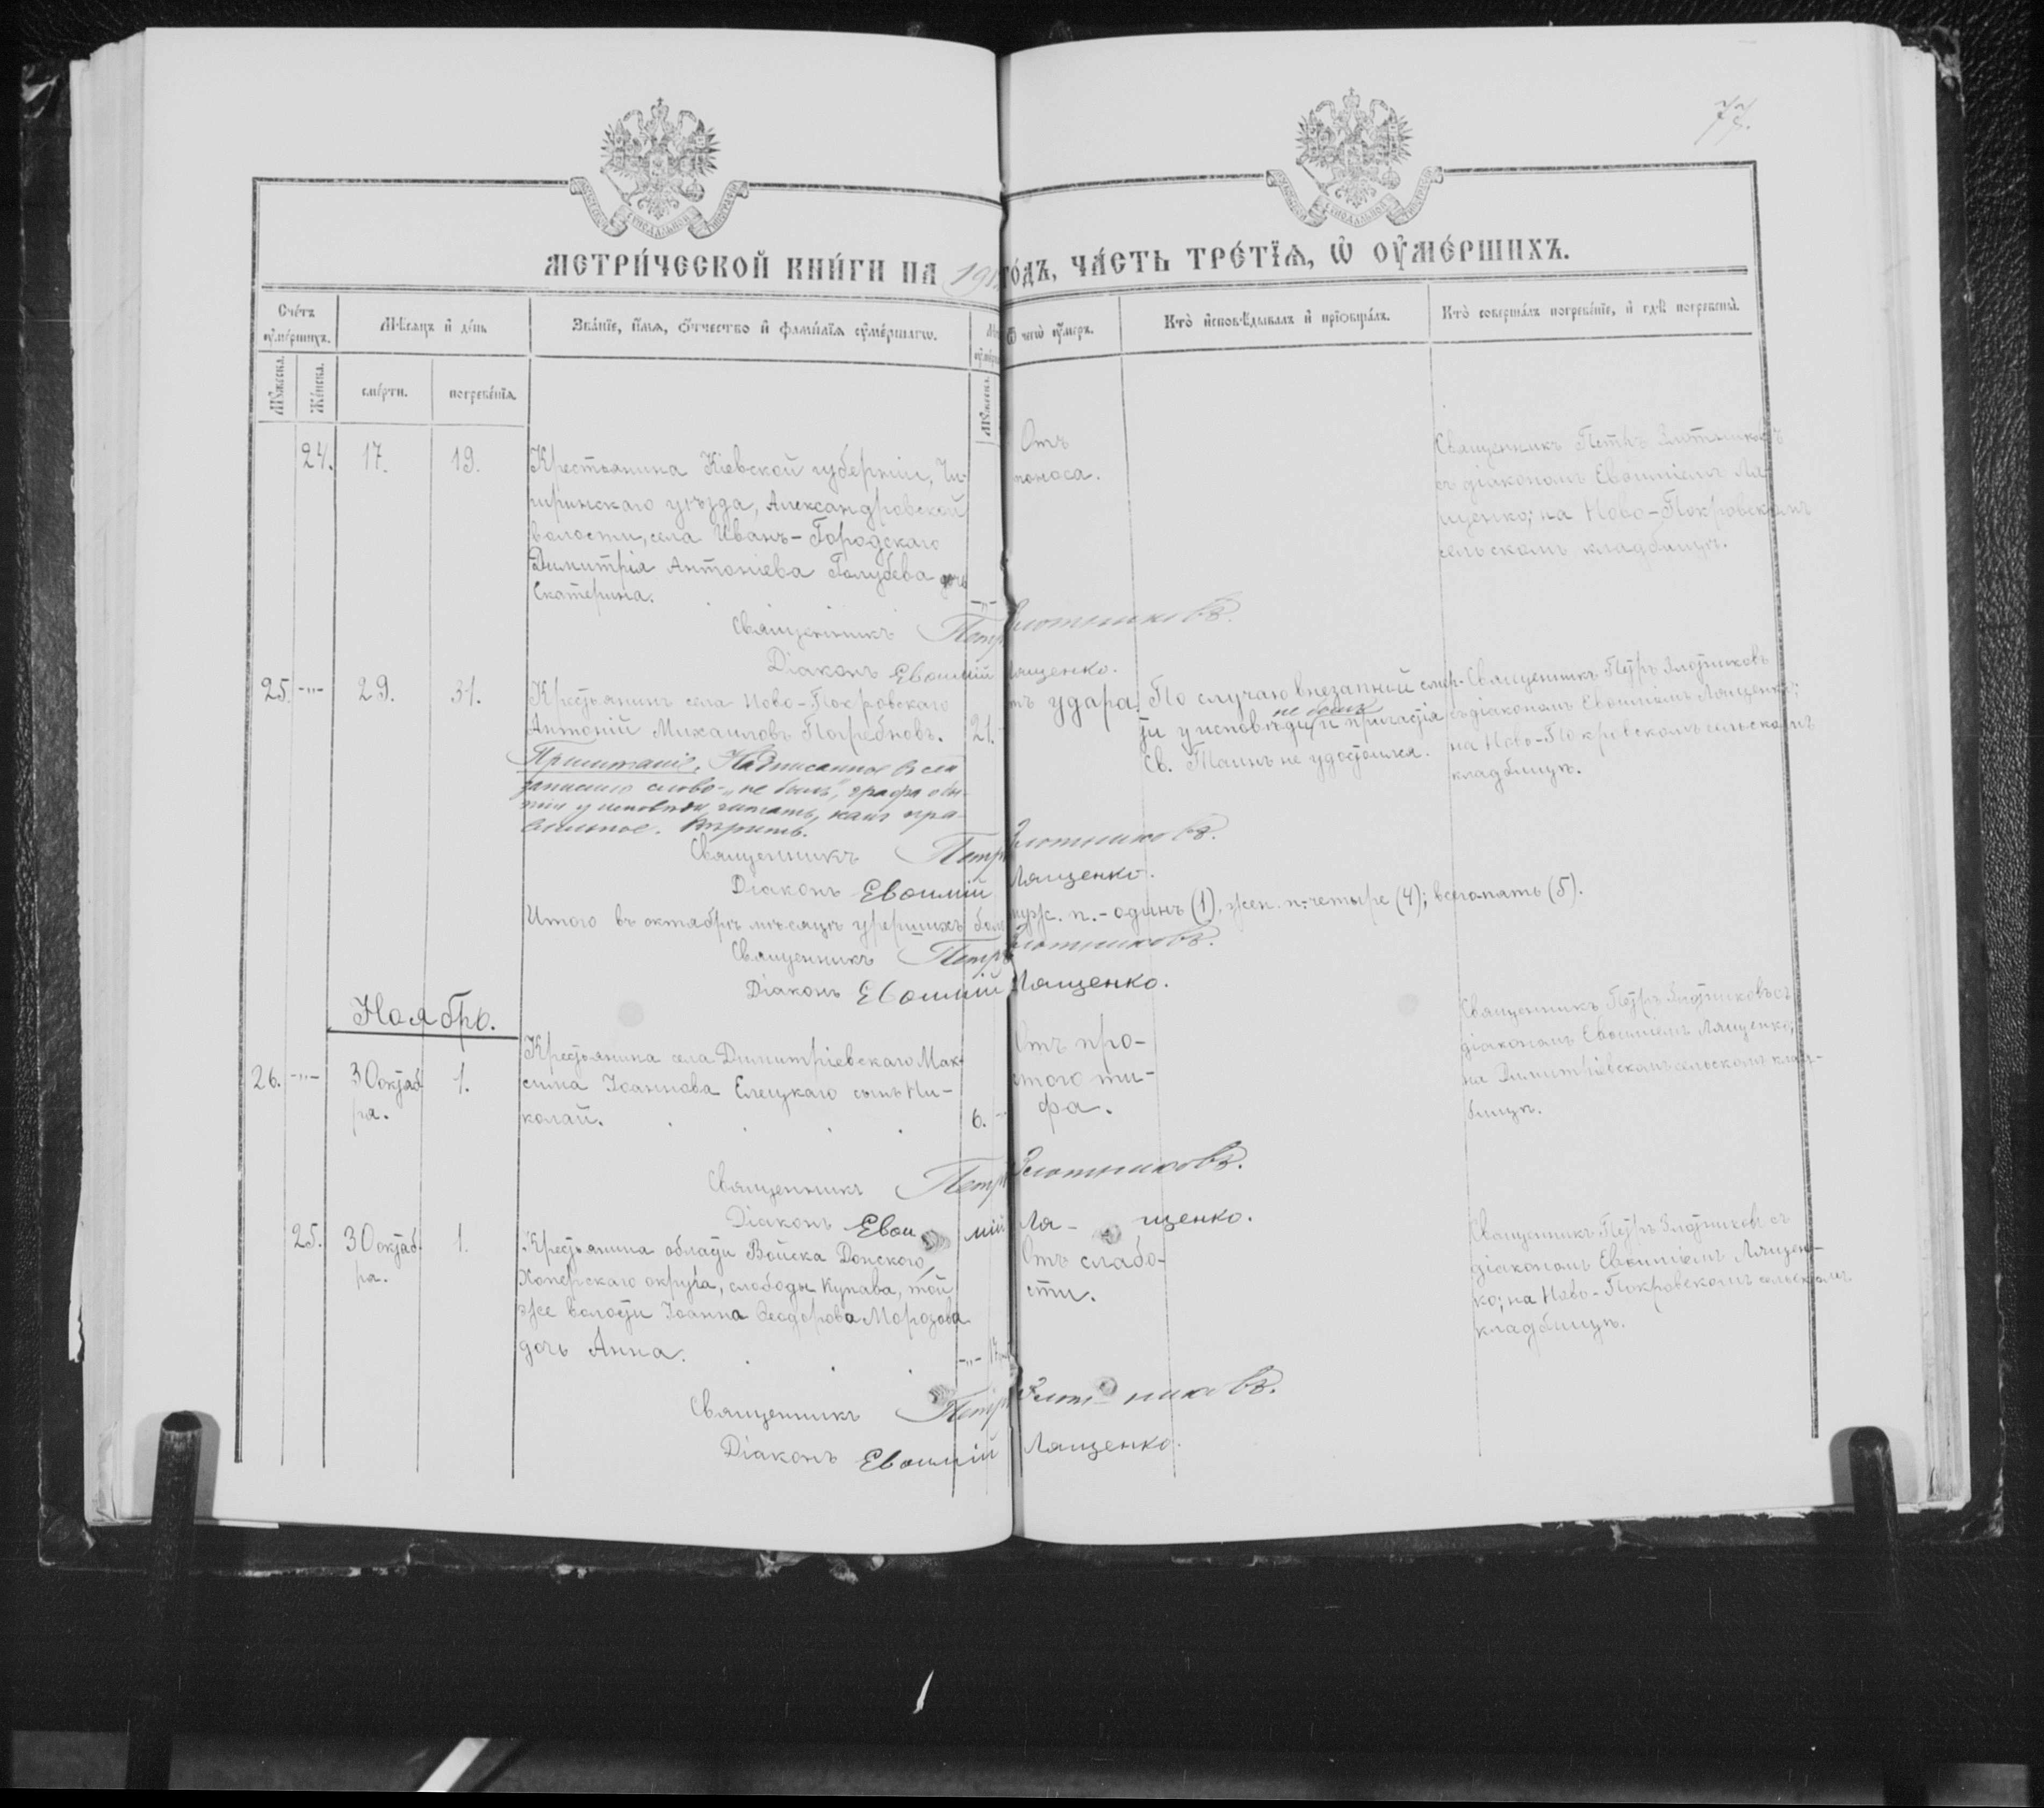 77.
МЕТРИ́ЧЕСКОЙ КНИ́ГИ НА 191
ГО́ДЪ, ЧА́СТЬ ТРЕ́ТЇѦ, Ѽ ОУ҆МЕ́РШИХЪ.
Сче́тъ оу҆ме́ршихъ.
Мѣ́сѧцъ и҆ де́нь
Зва́нїе, и҆́мѧ, ѻ҆́тчество и҆ фами́лїѧ оу҆ме́ршагѡ.
Ѿ чегѡ̀ оу҆́меръ.
Кто̀ и҆сповѣ́дывалъ и҆ прїѡбща́лъ.
Кто̀ соверша́лъ погребе́нїе, и҆ гдѣ̀ погребены̀.
Мꙋ́жеска.
Же́нска.
сме́рти.
погребе́нїѧ.
Мꙋ́жеска.
24. 17. 19.
Крестьянина Кіевской губерніи, Чи-
гиринскаго уѣзда, Александровской
волости, села Иванъ-Городскаго
Димитрія Антоніева Голубева дочь
Екатерина.
Отъ
поноса.
Священникъ Петръ Злотниковъ
съ діакономъ Евѳиміемъ Ля-
щенко; на Ново-Покровскомъ
сельскомъ кладбищѣ.
Священникъ Петръ Злотниковъ.
Діаконъ Евѳимій Лященко.
25. -"- 29. 31.
Крестьянинъ села Ново-Покровскаго
Антоній Михаиловъ Погребновъ. 21.
удара.
По случаю внезапной смер-
ти у исповѣди не былъ и причастія
Св. Таинъ не удостоился.
Священникъ Петръ Злотниковъ
съ діакономъ Евѳиміемъ Лященко;
на Ново-Покровскомъ сельскомъ
кладбищѣ.
слово „не былъ“,
читать, какъ пра-
вильное. Вѣрить.
Священникъ Петръ Злотниковъ.
Діаконъ Евѳимій Лященко.
Итого въ октябрѣ мѣсяцѣ умершихъ было муж. п. - одинъ (1), жен. п. - четыре (4); всего пять (5).
Священникъ Петръ Злотниковъ.
Діаконъ Евѳимій Лященко.
Ноябрь.
26. -"- 30 октяб-
ря. 1.
Крестьянина села Димитріевскаго Мак-
сима Іоаннова Елецкаго сынъ Ни-
колай. 6.
Отъ про-
стого ти-
фа.
Священникъ Петръ Злотниковъ съ
діакономъ Евѳиміемъ Лященко;
на Димитріевскомъ сельскомъ клад-
бищѣ.
Священникъ Петръ Злотниковъ.
Діаконъ Евѳимій Лященко.
25. 30 октяб-
ря. 1.
Крестьянина области Войска Донского,
Хоперскаго округа, слободы Купава, той
же волости Іоанна Ѳеодорова Морозова
дочь Анна. -"- 17
Отъ слабо-
сти.
Священникъ Петръ Злотниковъ съ
діакономъ Евѳиміемъ Лящен-
ко; на Ново-Покровскомъ сельскомъ
кладбищѣ.
Священникъ Петръ Злотниковъ.
Діаконъ Евѳимій Лященко.